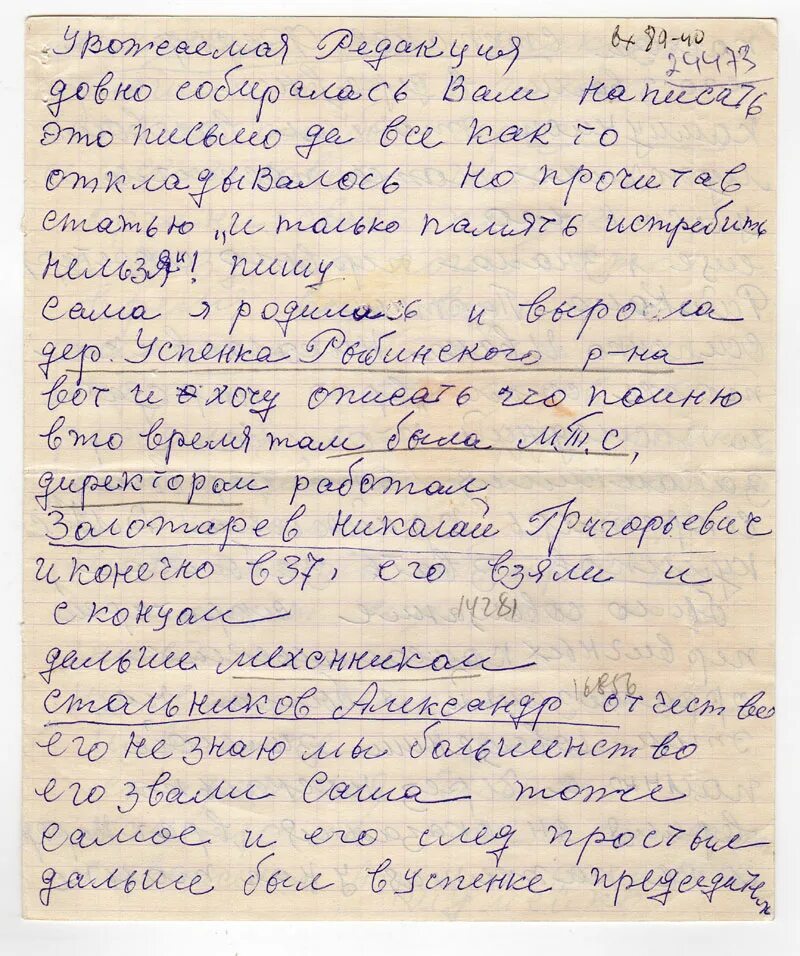 Увожаемая Редакция
вх 89-40
24473
довно собиралась Вам написать
это письмо да все как то
откладывалось но прочитав
статью „и только память истребить
нельзя"! пишу
сама я родилась и выросла
дер. Успенка Рыбинского р-на
вот и хочу описать что помню
в то время там была М.Т.С,
директором работал
Золотарев Николай Григорьевич
и конечно в 37, его взяли и
с концом
14281
дальше механником
16856
стальников Александр отчество
его не знаю мы большинство
его звали Саша тоже
самое и его след простыл
дальше был в Успенке председатель